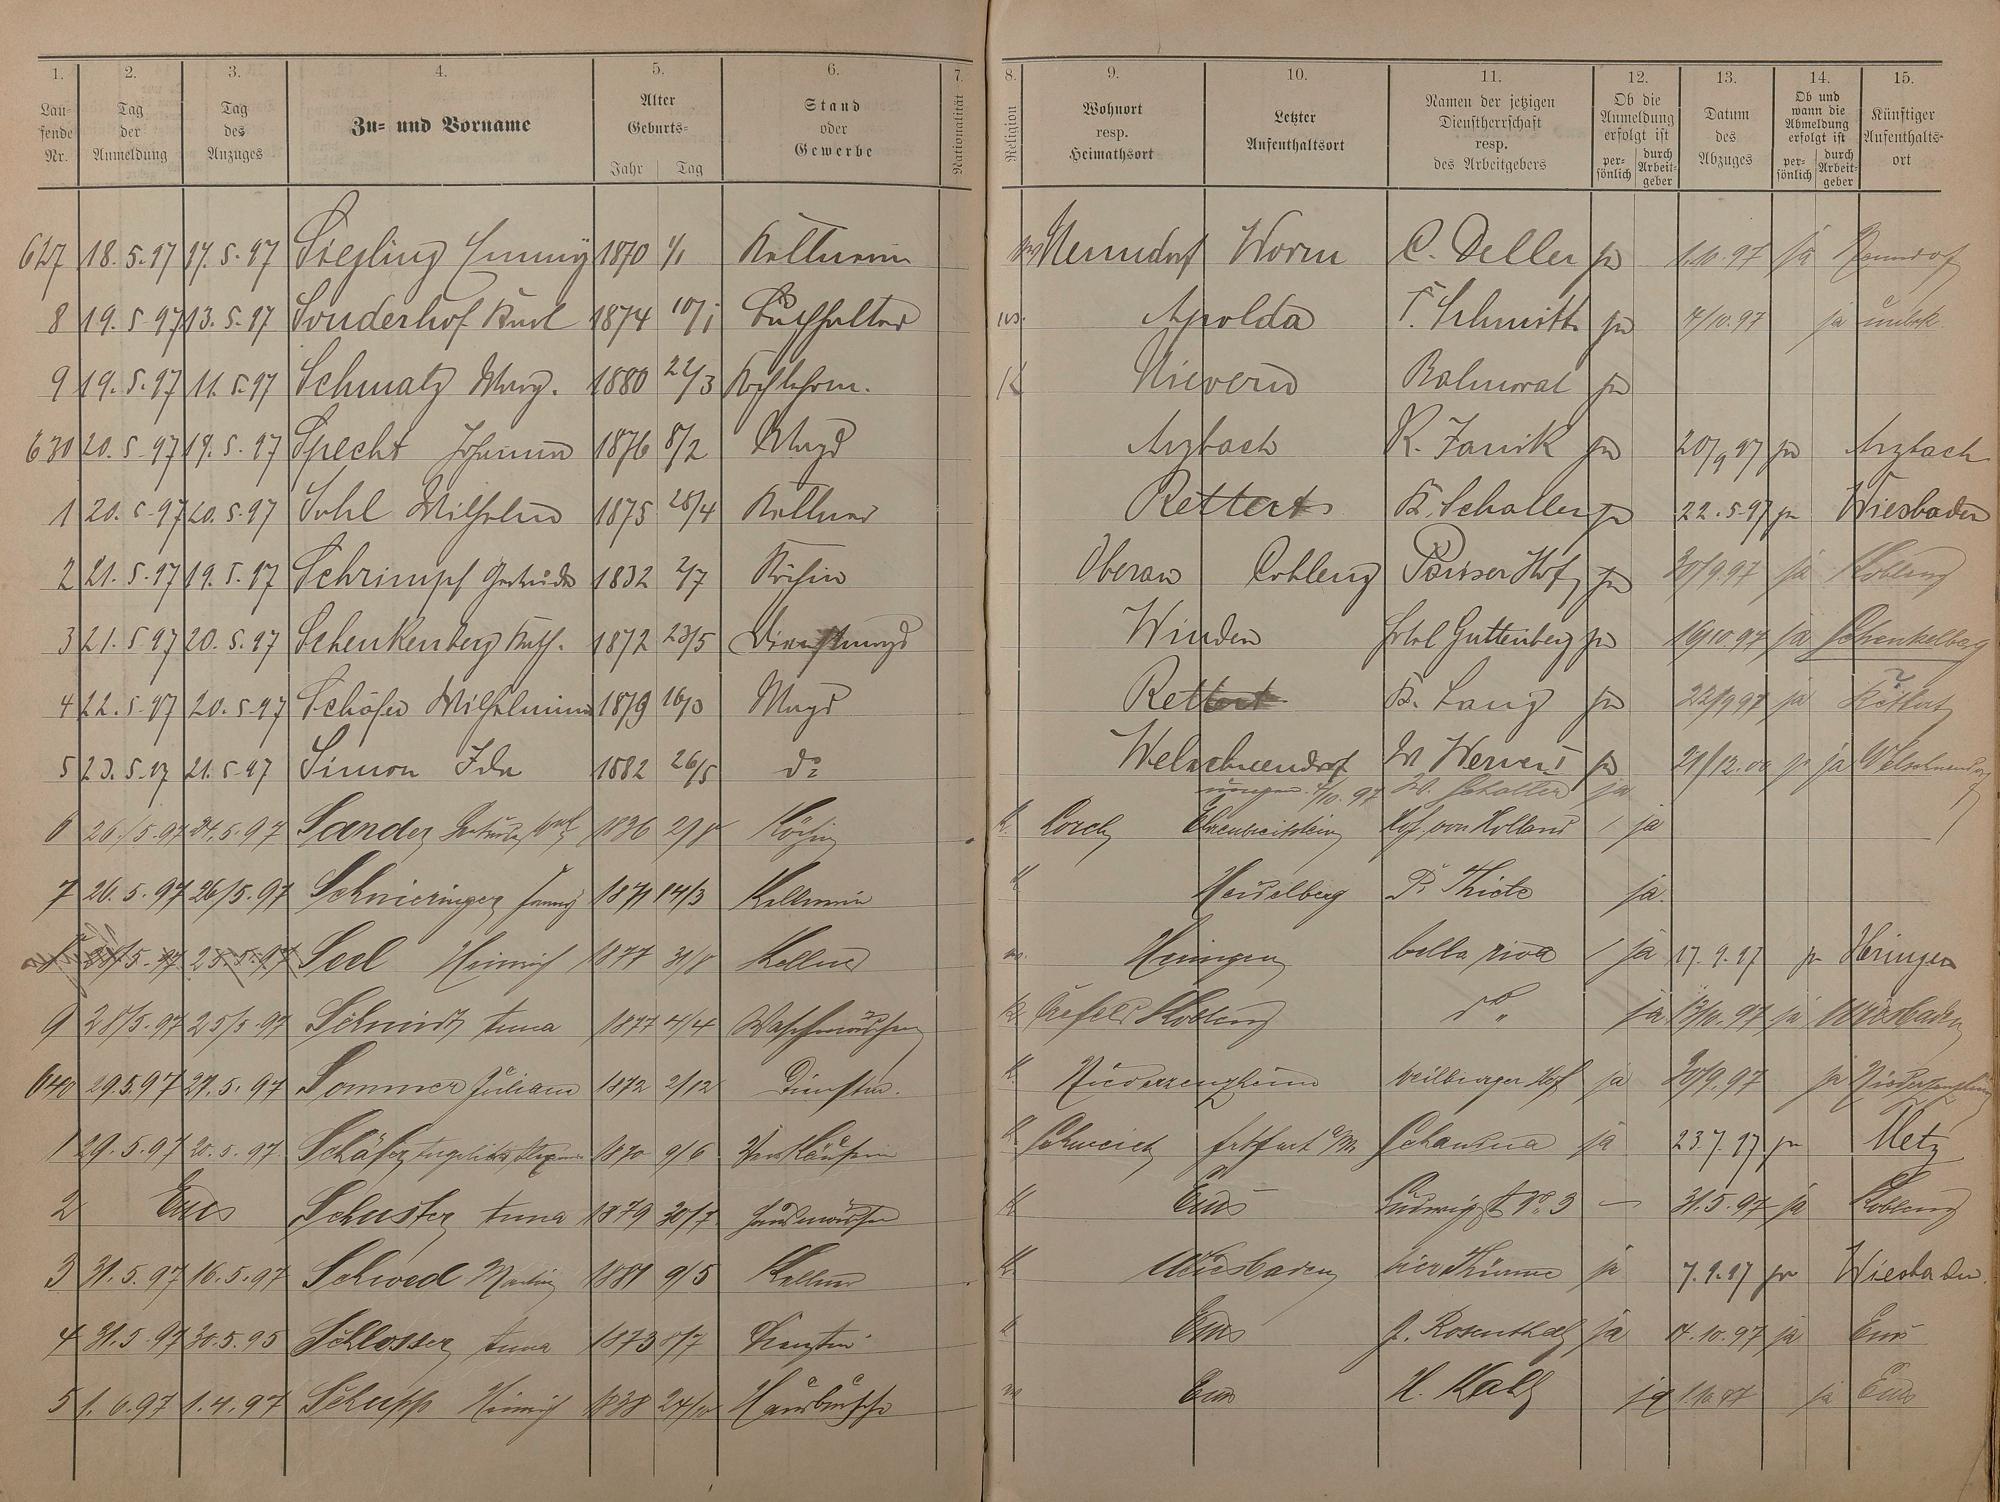 1. 2. 3. 4. 5. 6. 7. 8. 9. 10. 11. 12. 13. 14. 15.
Lau-
fende
Nr.
Tag
der
Anmeldung
Tag
des
Anzuges
Zu- und Vorname
Alter
Geburts-
Jahr Tag
Stand
oder
Gewerbe
Nationalität
Religion
Wohnort
resp.
Heimathsort
Letzter
Aufenthaltsort
Namen der jetzigen
Dienstherrschaft
resp.
des Arbeitgebers
Ob die
Anmeldung
erfolgt ist
per-
sönlich
durch
Arbeit-
geber
Datum
des
Abzuges
Ob und
wann die
Abmeldung
erfolgt ist
per-
sönlich
durch
Arbeit-
geber
Künftiger
Aufenthalts-
ort
627 18.5.97 17.5.97 Siegling Emmy 1870 1/1 Kellnerin C. Deller ja 1.10.97 ja
8 19.5.97 13.5.97 Sonderhof Karl 1874 10/1 Buchhalter Apolda F. Schmitt ja 7/10.97 ja unbek.
9 19.5.97 11.5.97 Schmatz Marg. 1880 22/3 K Nievern Balmoral ja
630 20.5.97 19.5.97 Specht Johanna 1876 8/2 Magd Arzbach K. Janik ja 20/9 97 ja Arzbach
1 20.5.97 20.5.97 Sohl Wilhelm 1875 28/4 Kellner Rettert K. Schaller ja 22.5.97 ja Wiesbaden
2 21.5.97 19.5.97 Schrimpf Gertrude 1832 2/7 Köchin Coblenz Pariser Hof ja 30/9.97 ja Koblenz
3 21.5.97 20.5.97 Schenkenberg Kath. 1872 23/5 Dienstmagd Winden Hotel Guttenberg ja 19/10.97 ja Schenkelberg
4 22.5.97 20.5.97 Schäfer Wilhelmine 1879 Magd Rettert K. Lang ja 22/9 97 ja Rettert
5 23.5.97 21.5.97 Simon Ida 1882 26/5 do Welschneudorf ja 21/12.00 ja ja Welschneudorf
7/10.97 W. Schaller ja
6 26/5.97 24.5.97 Sander 1836 29/8 Köchin K. Lorch Ehrenbreitstein Hof von Holland / ja
7 26.5.97 26/5.97 Schnieringer Fanny 1871 14/3 Kellnerin K Heidelberg P. Thiele ja.
25.5.97 Seel Heinrich 1877 31/8 Kellner Heringen bella riva / ja 17.9.97 ja Heringen
9 28/5.97 25/5.97 Schmidt Anna 1877 4/4 Waschmädchen K. Crefeld Koblenz do " ja 13/10.97 ja Wiesbaden
640 29.5.97 27.5.97 Sommer Juliane 1872 2/12 Dienstm. K. Niederzeuzheim Weilburger Hof ja 30/9.97 ja Niederzeuzheim
1 29.5.97 20.5.97 Schäfer 1870 9/6 Verkäuferin K. Schweich frkfurt a/M. ja 23.7.97 ja Metz
2 Ems Schuster Anna 1879 30/7 Hausmädchen K Ems Ludwigst No 3 — 31.5.97 ja Koblenz
3 31.5.97 16.5.97 Schwed Martin 1881 9/5 Kellner K. Wiesbaden vier Thürme ja 7.9.97 ja Wiesbaden.
4 31.5.97 30.5.95 Schlosser Anna 1873 8/7 K Ems J. Rosenthal ja 14.10.97 ja Ems
5 1.6.97 1.4.97 Schupp Heinrich 1838 24/10 Hausbursche Ems H. Kalb ja 1.10.97 ja Ems